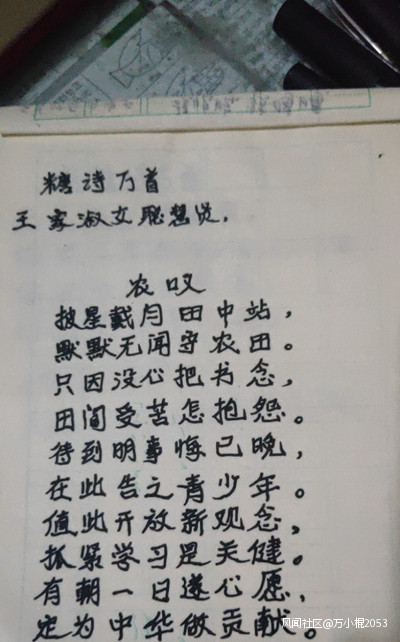 糖诗万首
王家淑女聪慧贤,
农叹
披星戴月田中站,
默默无闻守农田。
只因没心把书念,
田间受苦怎抱怨。
待到明事悔已晚,
在此告之青少年。
值此开放新观念,
抓紧学习是关健。
有朝一日遂心愿,
定为中华做贡献。
风闻社区@万小棍2053